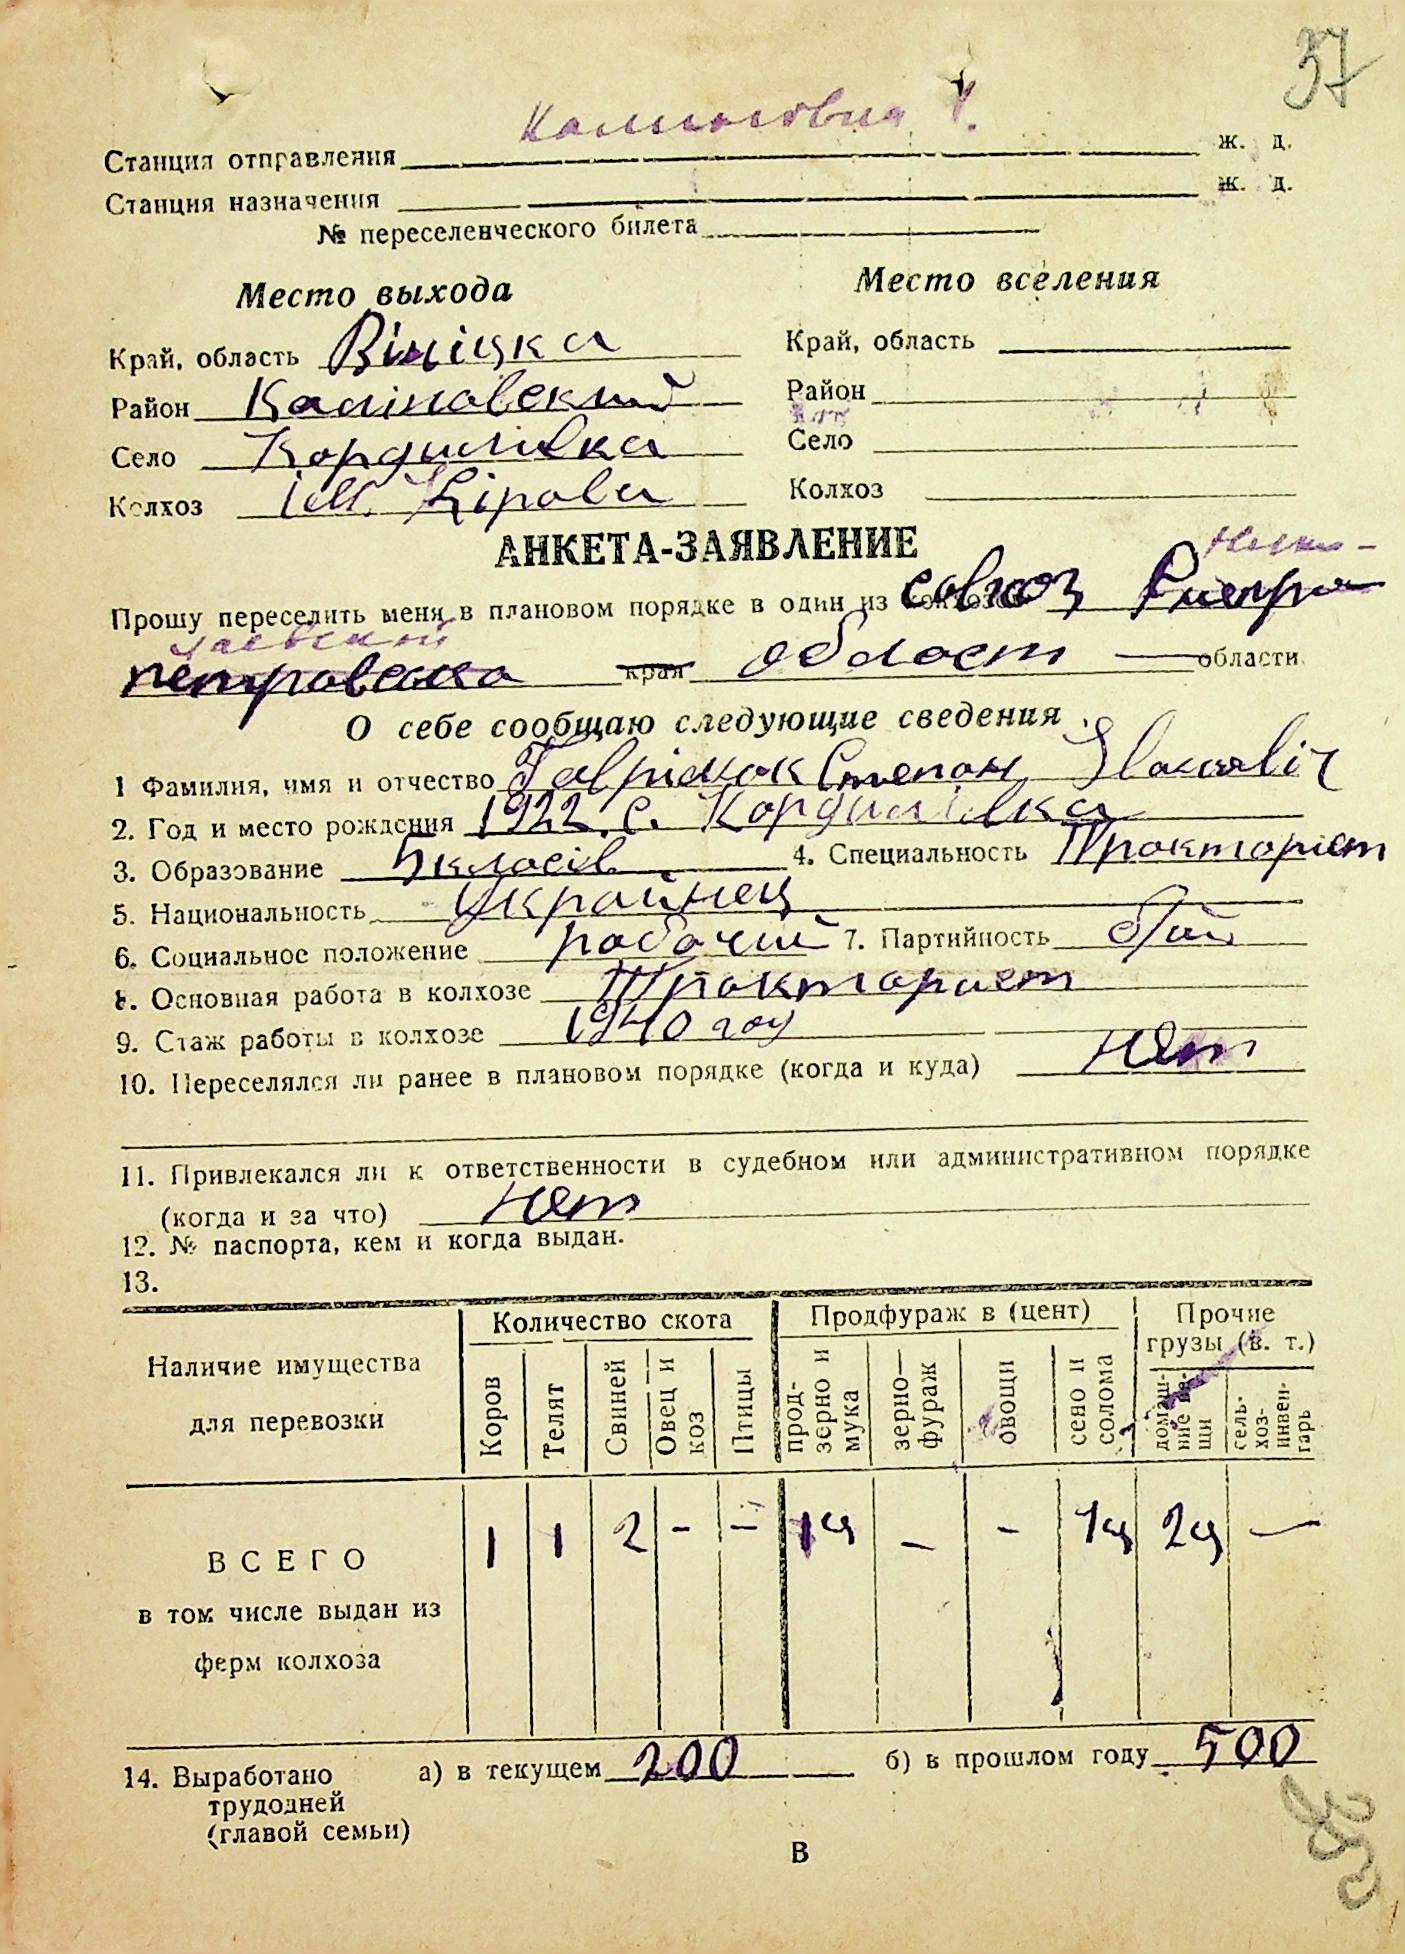 37
Калиновка I.
Станция отправления ж. д.
Станция назначения ж. д.
№ переселенческого билета
Место выхода Место вселения
Край, область Вініцка Край, область
Район Калиновский Район
Село Кордилівка Село
Колхоз ім. Кірова Колхоз
АНКЕТА-ЗАЯВЛЕНИЕ
Нико-
Прошу переселить меня в плановом порядке в один из совхоз Днепро
лаевской
петровска края област области
О себе сообщаю следующие сведения
1 Фамилия, имя и отчество Гаврілюк Степан
2. Год и место рождения 1922. с. Кордилівка
3. Образование 5 класів 4. Специальность Тракторист
5. Национальность Украйнец
6. Социальное положение рабочий 7. Партийность б/п
8. Основная работа в колхозе Тракторист
9. Стаж работы в колхозе 1940 году
10. Переселялся ли ранее в плановом порядке (когда и куда) Нет
11. Привлекался ли к ответственности в судебном или административном порядке
(когда и за что) Нет
12. № паспорта, кем и когда выдан.
13.
Наличие имущества для перевозки Количество скота Продфураж в (цент) Прочие грузы (в. т.)
Коров Телят Свиней Овец и коз Птицы прод-зерно и мука зерно—фураж овощи сено и солома домаш-ние ве-щи сель-хоз-инвен-тарь
ВСЕГО 1 1 2 - - 1ц - - 1ц 2ц —
в том числе выдан из
ферм колхоза
14. Выработано а) в текущем 200 б) в прошлом году 500
трудодней
(главой семьи)
В